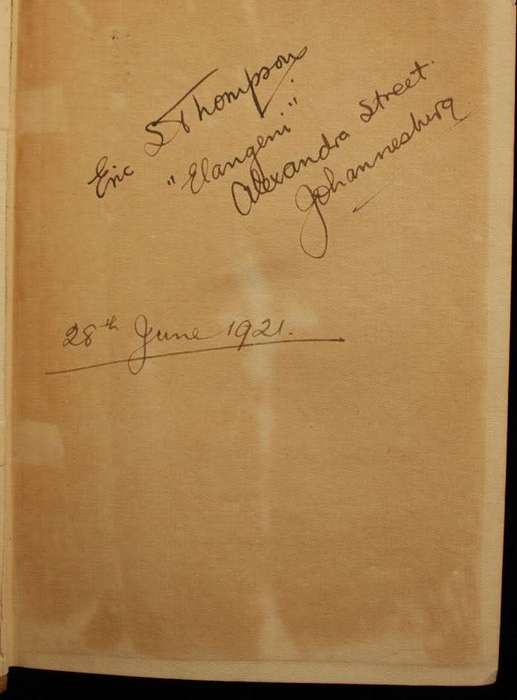 Eric S Thompson
"Elangeni"
Alexandra Street.
Johannesburg
28th June 1921.